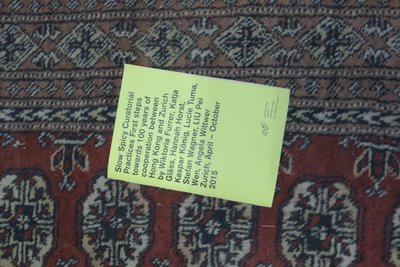 Slow Spicy Curatorial
Practices First steps
towards 100 years of
cooperation between
Hong Kong and Zurich
by Wiktoria Furrer, Katja
Gläss, Hannah Horst,
Kaspar König, Lucie Tuma,
Stefan Wagner, LIU Pei
Wen, Angela Wittwer
Zurich, April – October
2015